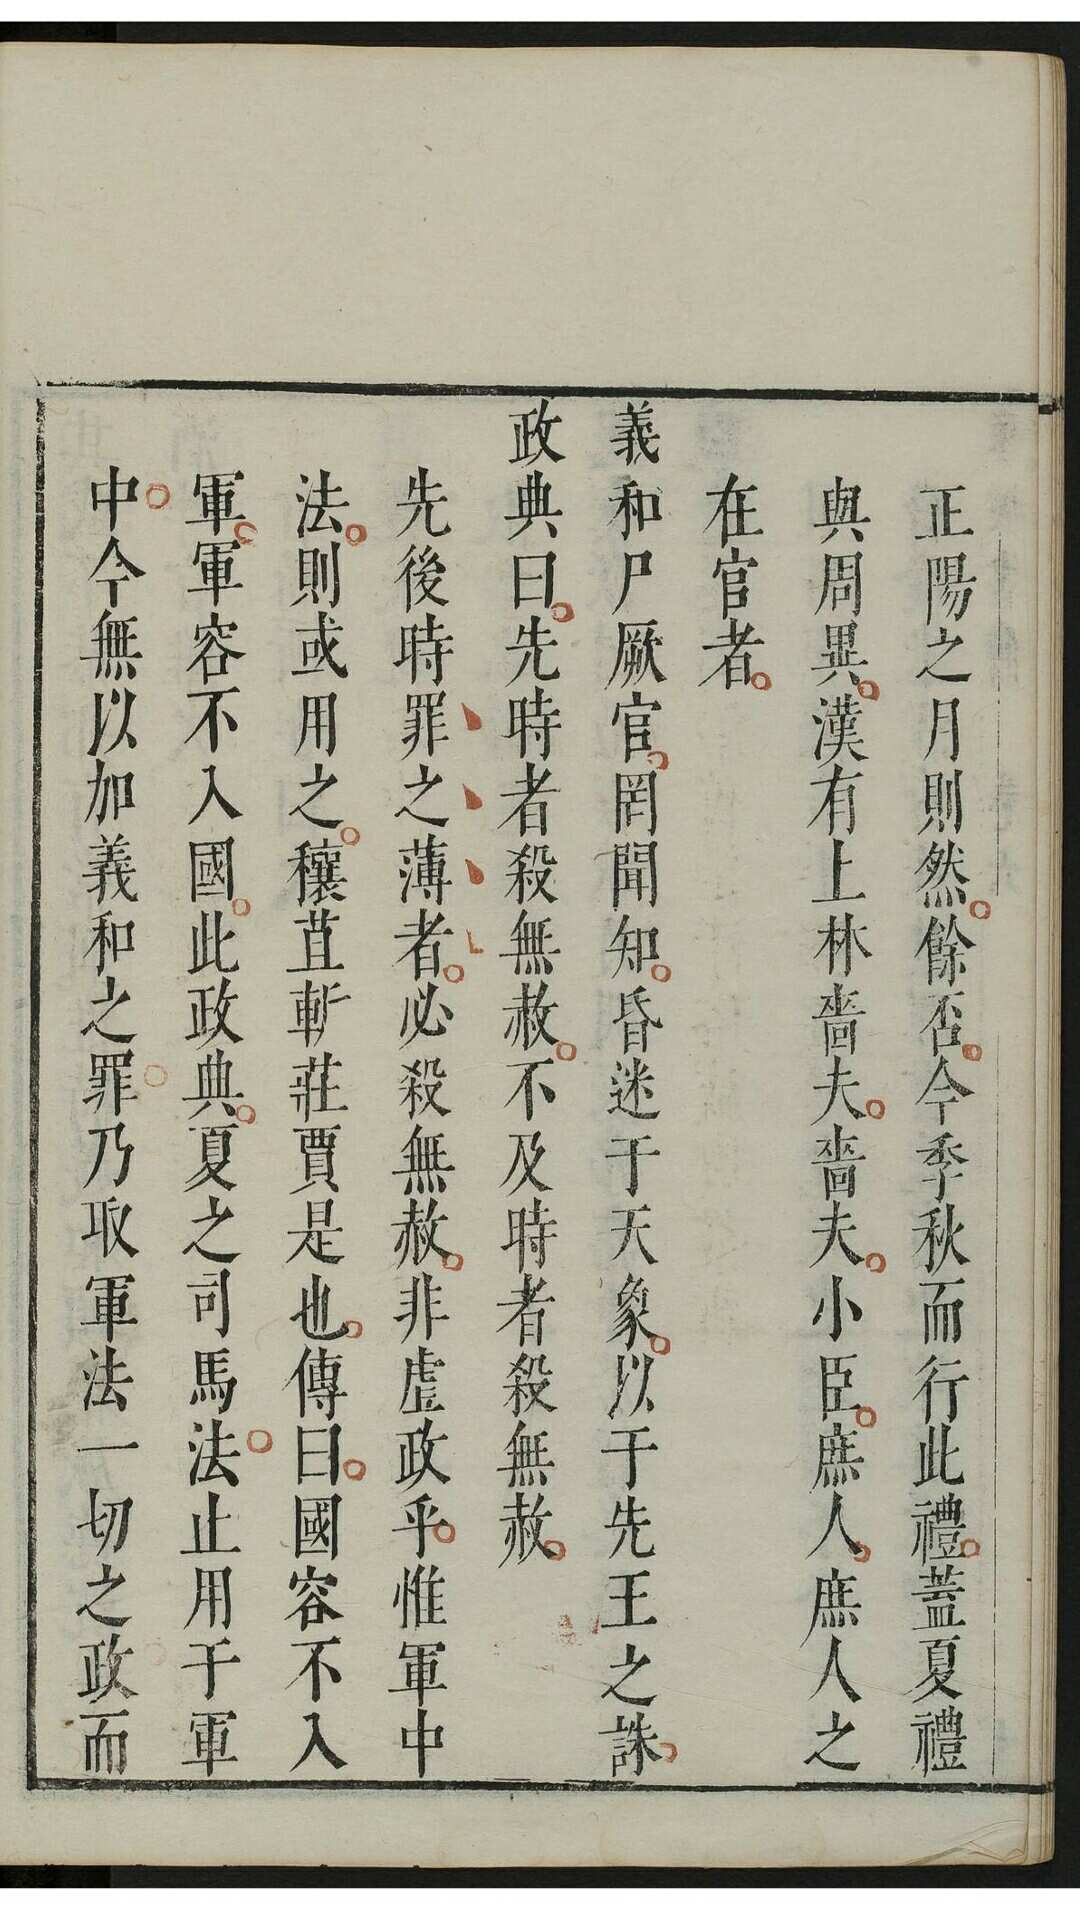 正陽之月則然餘否今季秋而行此禮蓋夏禮
與周異漢有上林嗇夫嗇夫小臣庶人庶人之
在官者
羲和尸厥官罔聞知昏迷于天象以于先王之誅
政典曰先時者殺無赦不及時者殺無赦
先後時罪之薄者必殺無赦非虐政乎惟軍中
法則或用之穰苴斬莊賈是也傳曰國容不入
軍軍容不入國此政典夏之司馬法止用于軍
中今無以加羲和之罪乃取軍法一切之政而